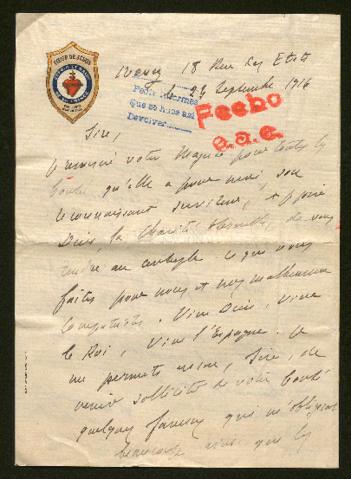 18 Rue des Etats
24 Septembre 1916
Pedir informes
Que se haga así
Devolver
Fecho
Sire,
remercie votre Majesté pour toutes les
bontés qu'elle a pour moi, son
reconnaissant serviteur, & prie
Dieu, la Charité éternelle, de vous
rendre au centuple ce que vous
faites pour nous et nos malheureux
compatriotes. Vive Dieu, vive
le Roi, vive l'Espagne. Je
me permets, Sire, de
venir solliciter de votre bonté
quelques faveurs qui m'obligeront
beaucoup ainsi que les